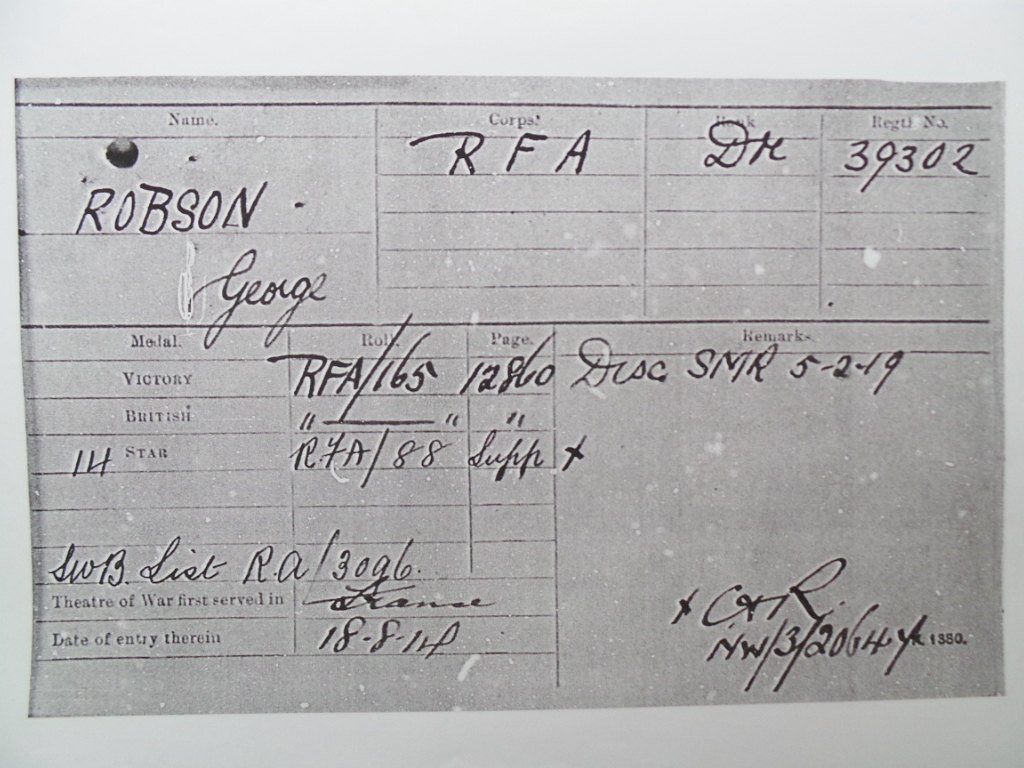 Name. Corps. Rank Regtl No.
R F A Dr 39302
ROBSON
George
Medal. Roll. Page. Remarks.
VICTORY RFA/165 12860 Disc SMR 5-2-19
BRITISH " —— " "
14 STAR R.F.A/88 Supp x
SWB. List R.A/3096.
Theatre of War first served in France
Date of entry therein 18-8-14
x C & R.
NW/3/20644 K 1380.